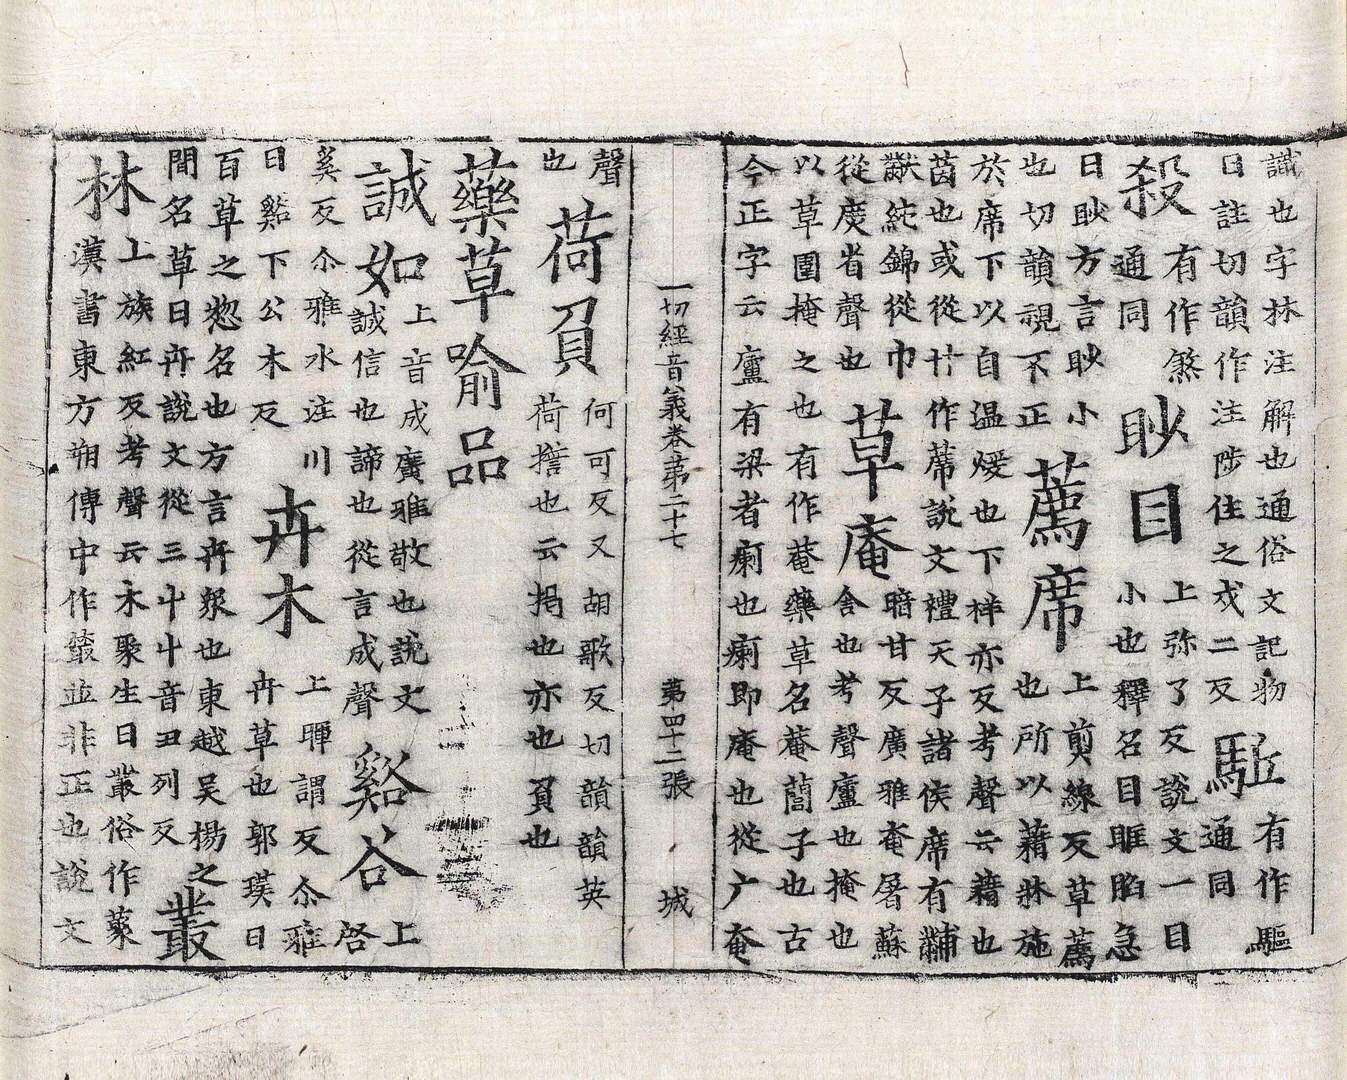 識也字林注解也通俗文記物曰註切韻作注陟住之戍二反駈有作驅通同
殺有作煞通同眇目上弥了反說文一目小也釋名目眶陷急
曰眇方言眇小也切韻視不正薦席上剪線反草薦也所以藉牀施
於席下以自温煖也下祥亦反考聲云藉也茵也或從艹作蓆說文禮天子諸侯席有黼
黻純錦從巾從庶省聲也草庵暗甘反廣雅奄屠蘇舍也考聲廬也掩也
以草圍掩之也有作菴藥草名菴䕡子也古今正字云廬有梁者㾐也㾐即庵也從广奄
一切經音義卷第二十七 第四十二張 城
聲也荷負何可反又胡歌反切韻韻英荷擔也云揭也亦也負也
藥草喻品
誠如上音成廣雅敬也說文誠信也諦也從言成聲谿谷上啓
奚反尒雅水注川曰谿下公木反卉木上暉謂反尒雅卉草也郭璞曰
百草之惣名也方言卉衆也東越吴楊之間名草曰卉說文從三屮屮音丑列反叢
林上族紅反考聲云木聚生曰叢俗作藂漢書東方朔傳中作䕺並非正也說文